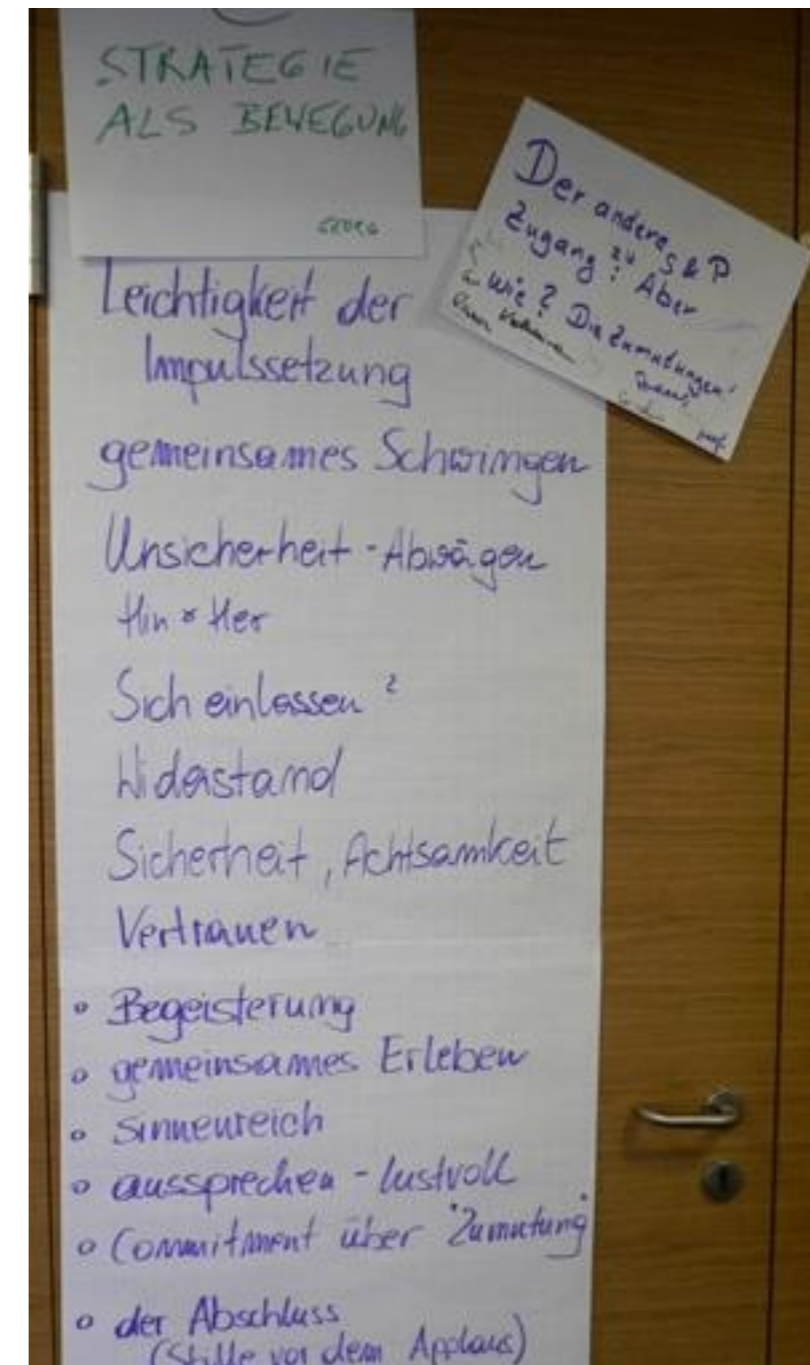 STRATEGIE
ALS BEWEGUNG
GEORG
Der andere
Zugang zu S & P
? Aber
wie? Die Zumutungen!
Leichtigkeit der
Impulssetzung
gemeinsames Schwingen
Unsicherheit - Abwägen
Hin & Her
Sich einlassen ?
Widerstand
Sicherheit, Achtsamkeit
Vertrauen
• Begeisterung
• gemeinsames Erleben
• sinnenreich
• aussprechen - lustvoll
• Commitment über "Zumutung"
• der Abschluss
(Stille vor dem Applaus)